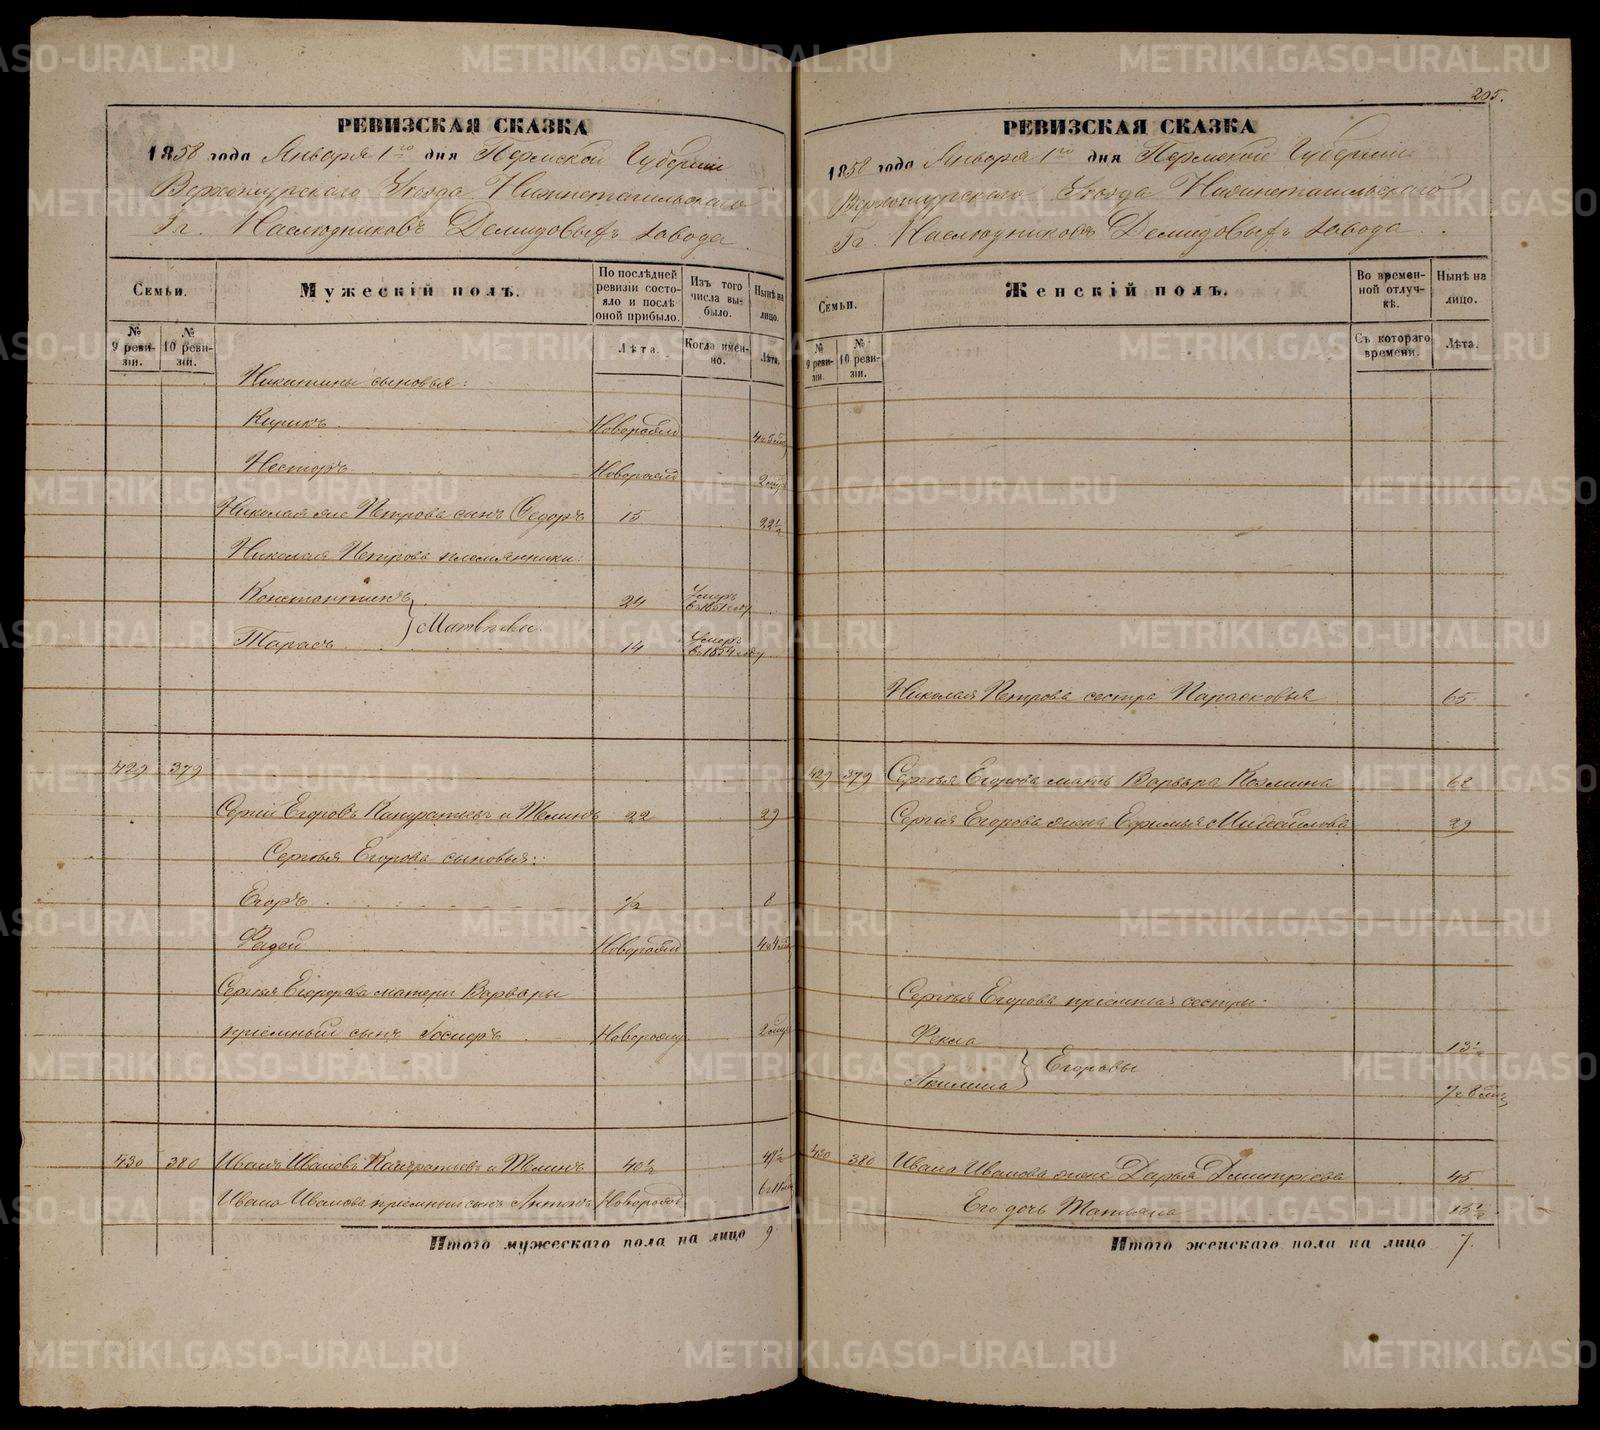 205.
РЕВИЗСКАЯ СКАЗКА
1858 года Января 1го дня Пермской Губернии
Верхотурского Уезда Нижнетагильского
Гг. Наследниковъ Демидовыхъ завода
Семьи.
Мужескій полъ.
По последней ревизіи состояло и после оной прибыло.
Изъ того числа выбыло.
Ныне на лицо.
№ 9 ревизіи.
№ 10 ревизіи.
Лѣта.
Когда именно.
Лѣта.
Никитины сыновья:
Кирикъ Новорожд
Несторъ Новорожд
Николая же Петрова сынъ Федоръ 15 22½
Николая Петрова племянники:
Константинъ 24 Умеръ
Матвѣевы
Тарасъ 14 Умеръ въ 1854 году
429 379
Сергій Егоровъ Кандратьевъ и Тѣлинъ 22 29
Сергѣя Егорова сыновья:
Егоръ ½ 8
Фадей Новорожд
Сергѣя Егорова матери Варвары
приемный сынъ Новорожд
430 380 Иванъ Ивановъ Кандратьевъ и Тѣлинъ 40½ 48½
Ивана Иванова приемный сынъ Антонъ Новорожд
Итого мужескаго пола на лицо 9
РЕВИЗСКАЯ СКАЗКА
1858 года Января 1го дня Пермской Губерніи
Верхотурского Уезда Нижнетагильского
Гг. Наследниковъ Демидовыхъ завода
Семьи.
Женскій полъ.
Во временной отлучкѣ.
Нынѣ на лицо.
№ 9 ревизіи.
№ 10 ревизіи.
Съ котораго времени.
Лѣта.
Николая Петрова сестра Парасковья 65
429 379 Сергѣя Егорова мать Варвара Козмина 62
Сергѣя Егорова жена Ефимья Михайлова 29
Сергѣя Егорова приемныя сестры:
Фекла 13½
Егоровы
Акилина
430 380 Ивана Иванова жена Дарья Дмитріева 45
Его дочь Татьяна 15½
Итого женскаго пола на лицо 7.
METRIKI.GASO-URAL.RU